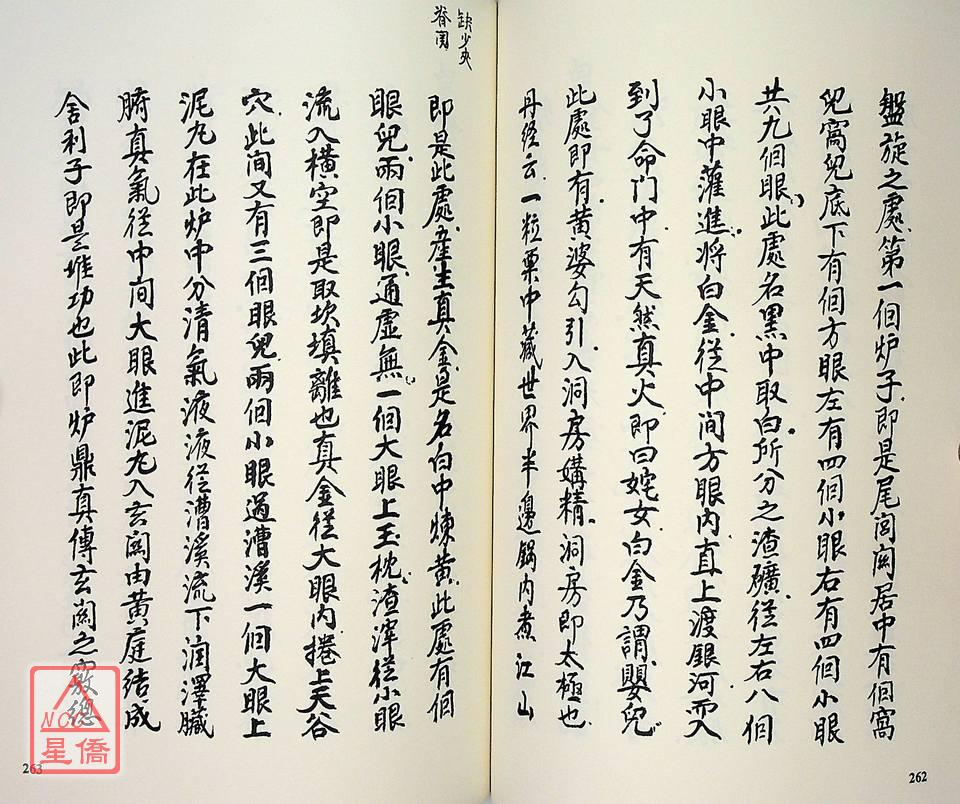 盤旋之處第一個炉子即是尾閭関居中有個窩
兜窩兜底下有個方眼左有四個小眼右有四個小眼
共九個眼此處名黑中取白所分之渣礦從左右八個
小眼中灌進將白金從中間方眼內直上渡銀河而入
到了命門中有天然真火即曰姹女白金乃謂嬰兒
此處即有黃婆勾引入洞房媾精洞房即太極也
丹經云一粒粟中藏世界半邊鍋內煮江山
262
缺少夾
脊関
即是此處產生真金是名白中煉黃此處有個
眼兒兩個小眼通虛無一個大眼上玉枕渣滓從小眼
流入橫空即是取坎填離也真金從大眼內捲上天谷
穴此间又有三個眼兒兩個小眼過漕溪一個大眼上
泥丸在此炉中分清氣液液從漕溪流下润澤臟
腑真氣從中间大眼進泥丸入玄関由黃庭结成
舍利子即是堆功也此即炉鼎真傳玄関之竅總
263
NCC
星僑